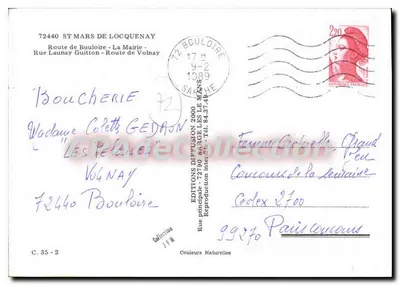 72440 ST MARS DE LOCQUENAY
Route de Bouloire - La Mairie -
Rue Launay Guitton - Route de Volnay
72 BOULOIRE
17 H
9-2
1989
SARTHE
2,20
72
BOUCHERIE
Madame Colette GEDRON
VOLNAY
72440 Bouloire
EDITIONS DIFFUSION 2000
Rue principale - 72790 SARGE LES LE MANS
Reproduction interdite - Tél. 84.37.49
Femme Actuelle
Concours de la semaine
Cedex 2700
99270 Paris concours
C. 35 - 2
Collection
Couleurs Naturelles